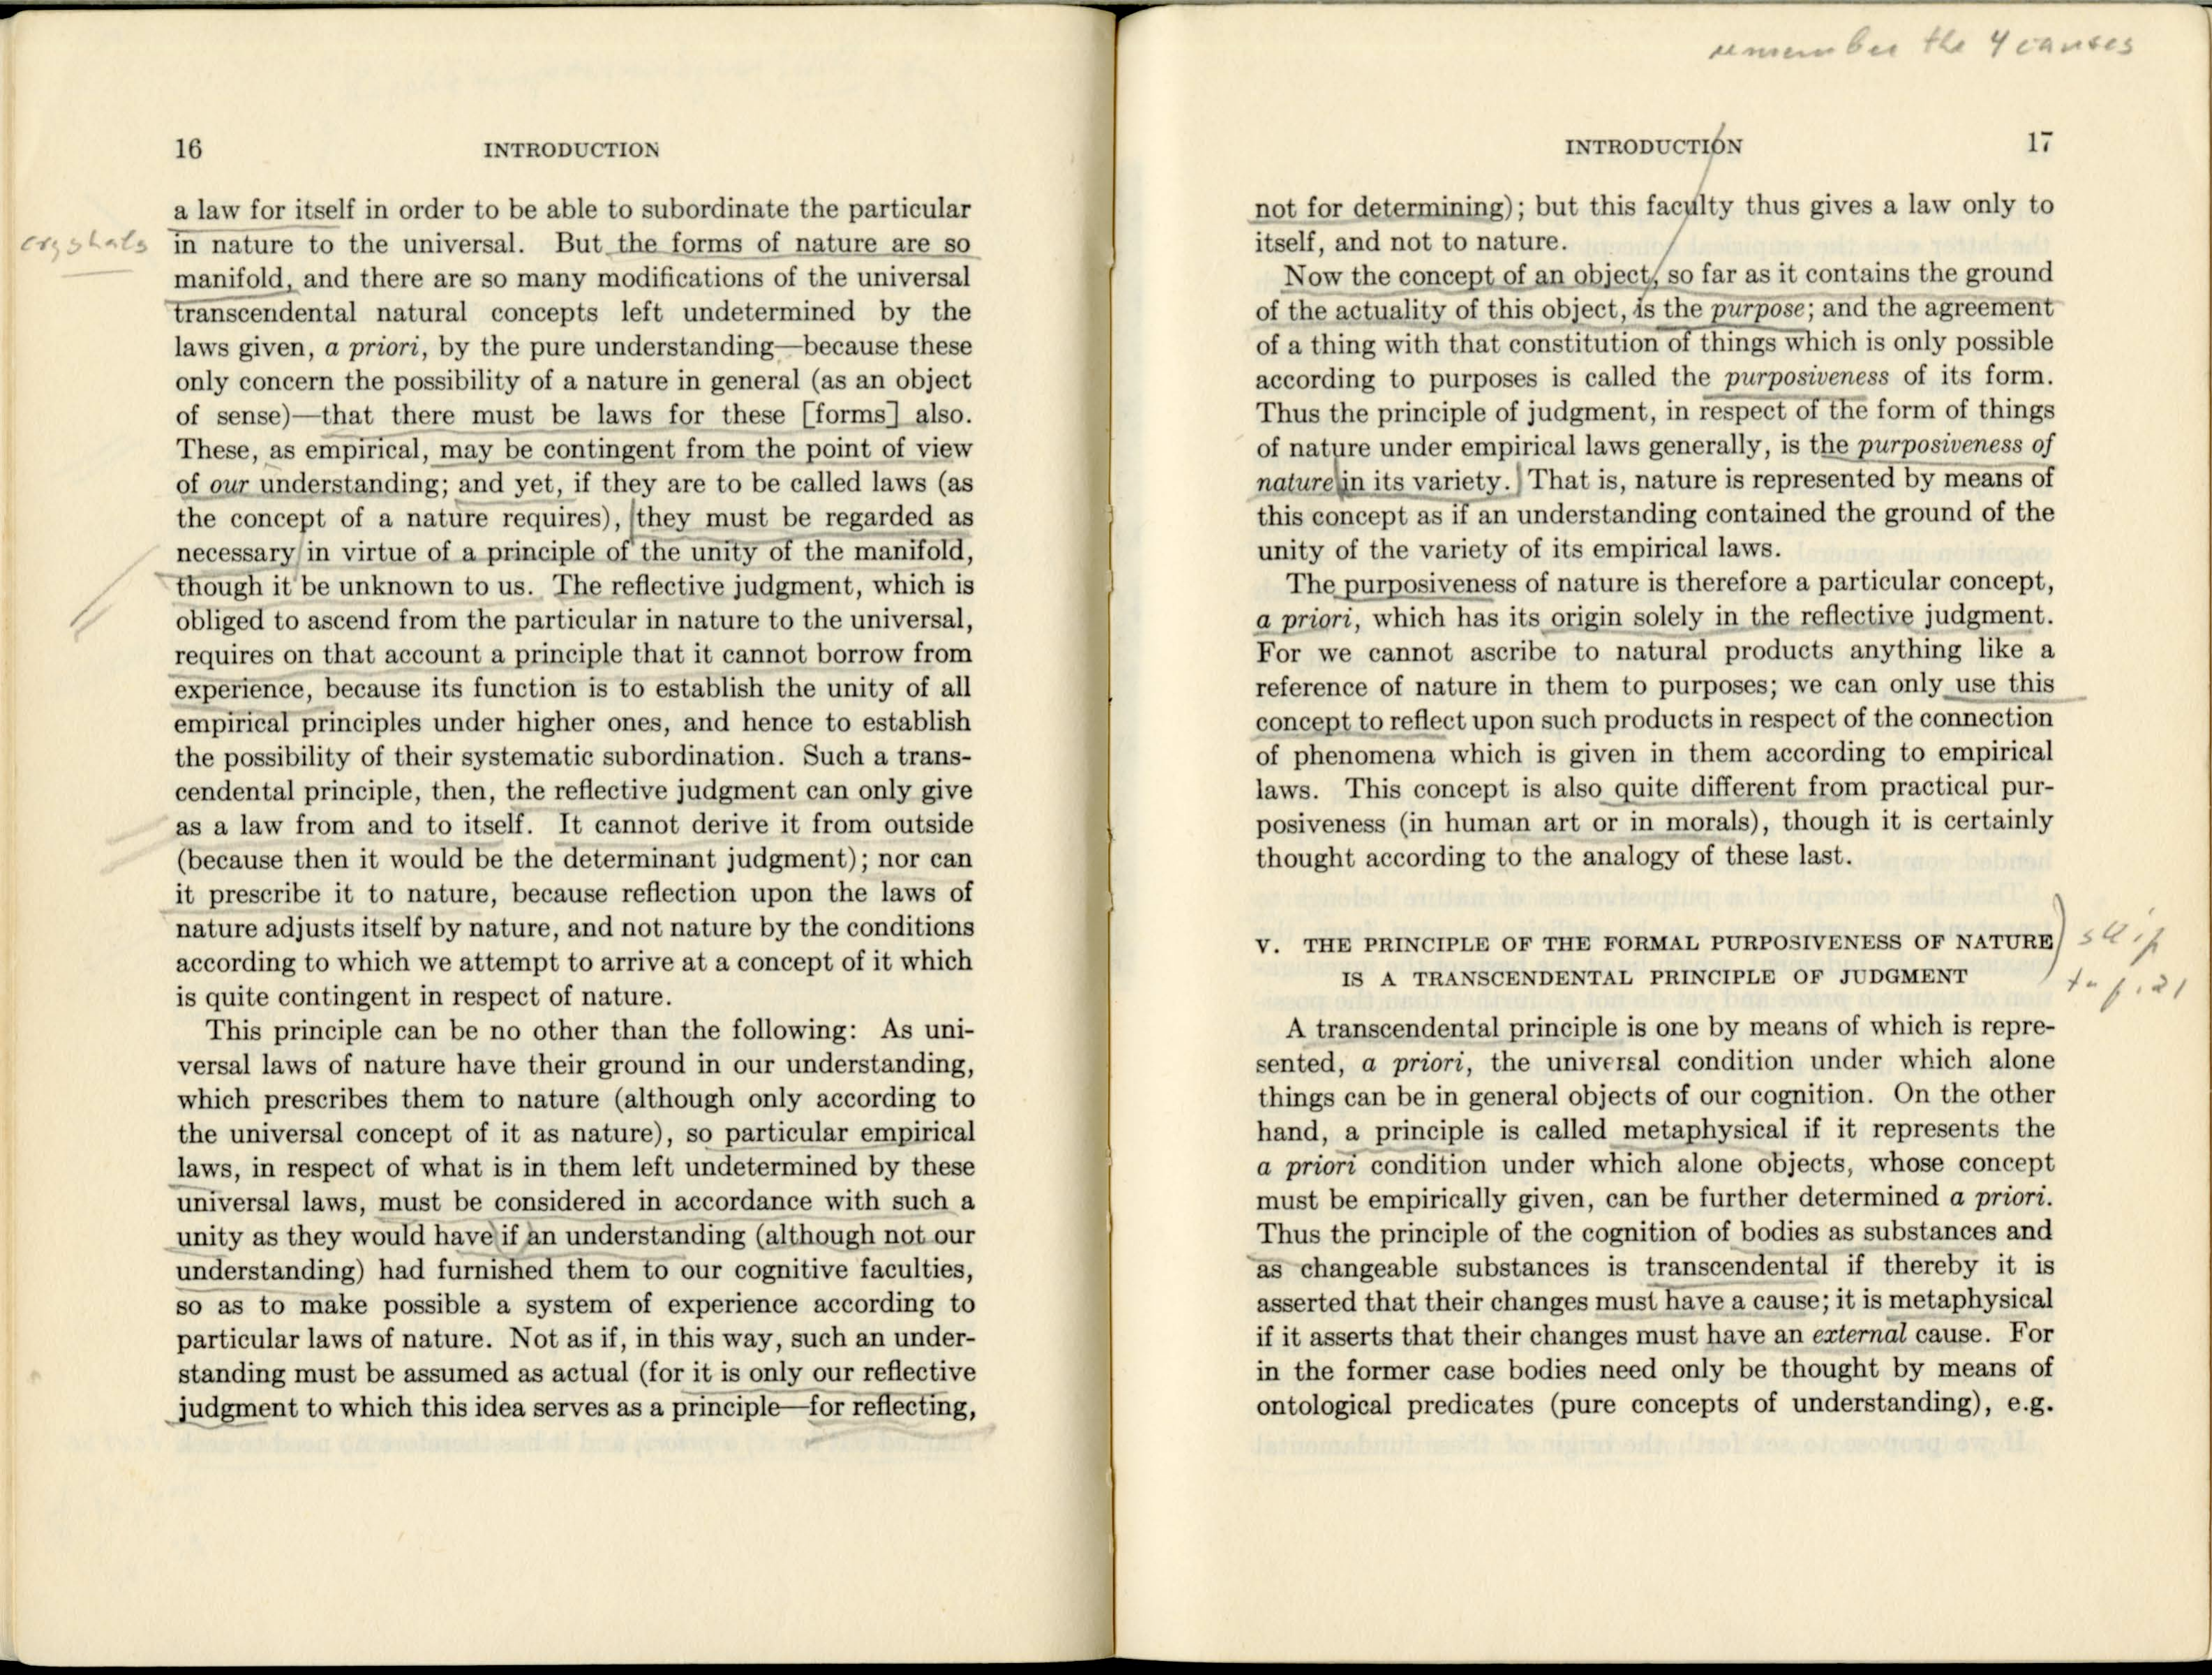 16 INTRODUCTION
a law for itself in order to be able to subordinate the particular
crystals
in nature to the universal. But the forms of nature are so
manifold, and there are so many modifications of the universal
transcendental natural concepts left undetermined by the
laws given, a priori, by the pure understanding—because these
only concern the possibility of a nature in general (as an object
of sense)—that there must be laws for these [forms] also.
These, as empirical, may be contingent from the point of view
of our understanding; and yet, if they are to be called laws (as
the concept of a nature requires), they must be regarded as
necessary in virtue of a principle of the unity of the manifold,
though it be unknown to us. The reflective judgment, which is
obliged to ascend from the particular in nature to the universal,
requires on that account a principle that it cannot borrow from
experience, because its function is to establish the unity of all
empirical principles under higher ones, and hence to establish
the possibility of their systematic subordination. Such a trans-
cendental principle, then, the reflective judgment can only give
as a law from and to itself. It cannot derive it from outside
(because then it would be the determinant judgment); nor can
it prescribe it to nature, because reflection upon the laws of
nature adjusts itself by nature, and not nature by the conditions
according to which we attempt to arrive at a concept of it which
is quite contingent in respect of nature.
This principle can be no other than the following: As uni-
versal laws of nature have their ground in our understanding,
which prescribes them to nature (although only according to
the universal concept of it as nature), so particular empirical
laws, in respect of what is in them left undetermined by these
universal laws, must be considered in accordance with such a
unity as they would have if an understanding (although not our
understanding) had furnished them to our cognitive faculties,
so as to make possible a system of experience according to
particular laws of nature. Not as if, in this way, such an under-
standing must be assumed as actual (for it is only our reflective
judgment to which this idea serves as a principle—for reflecting,
remember the 4 causes
INTRODUCTION 17
not for determining); but this faculty thus gives a law only to
itself, and not to nature.
Now the concept of an object, so far as it contains the ground
of the actuality of this object, is the purpose; and the agreement
of a thing with that constitution of things which is only possible
according to purposes is called the purposiveness of its form.
Thus the principle of judgment, in respect of the form of things
of nature under empirical laws generally, is the purposiveness of
nature in its variety. That is, nature is represented by means of
this concept as if an understanding contained the ground of the
unity of the variety of its empirical laws.
The purposiveness of nature is therefore a particular concept,
a priori, which has its origin solely in the reflective judgment.
For we cannot ascribe to natural products anything like a
reference of nature in them to purposes; we can only use this
concept to reflect upon such products in respect of the connection
of phenomena which is given in them according to empirical
laws. This concept is also quite different from practical pur-
posiveness (in human art or in morals), though it is certainly
thought according to the analogy of these last.
V. THE PRINCIPLE OF THE FORMAL PURPOSIVENESS OF NATURE
IS A TRANSCENDENTAL PRINCIPLE OF JUDGMENT
skip
to p. 21
A transcendental principle is one by means of which is repre-
sented, a priori, the universal condition under which alone
things can be in general objects of our cognition. On the other
hand, a principle is called metaphysical if it represents the
a priori condition under which alone objects, whose concept
must be empirically given, can be further determined a priori.
Thus the principle of the cognition of bodies as substances and
as changeable substances is transcendental if thereby it is
asserted that their changes must have a cause; it is metaphysical
if it asserts that their changes must have an external cause. For
in the former case bodies need only be thought by means of
ontological predicates (pure concepts of understanding), e.g.